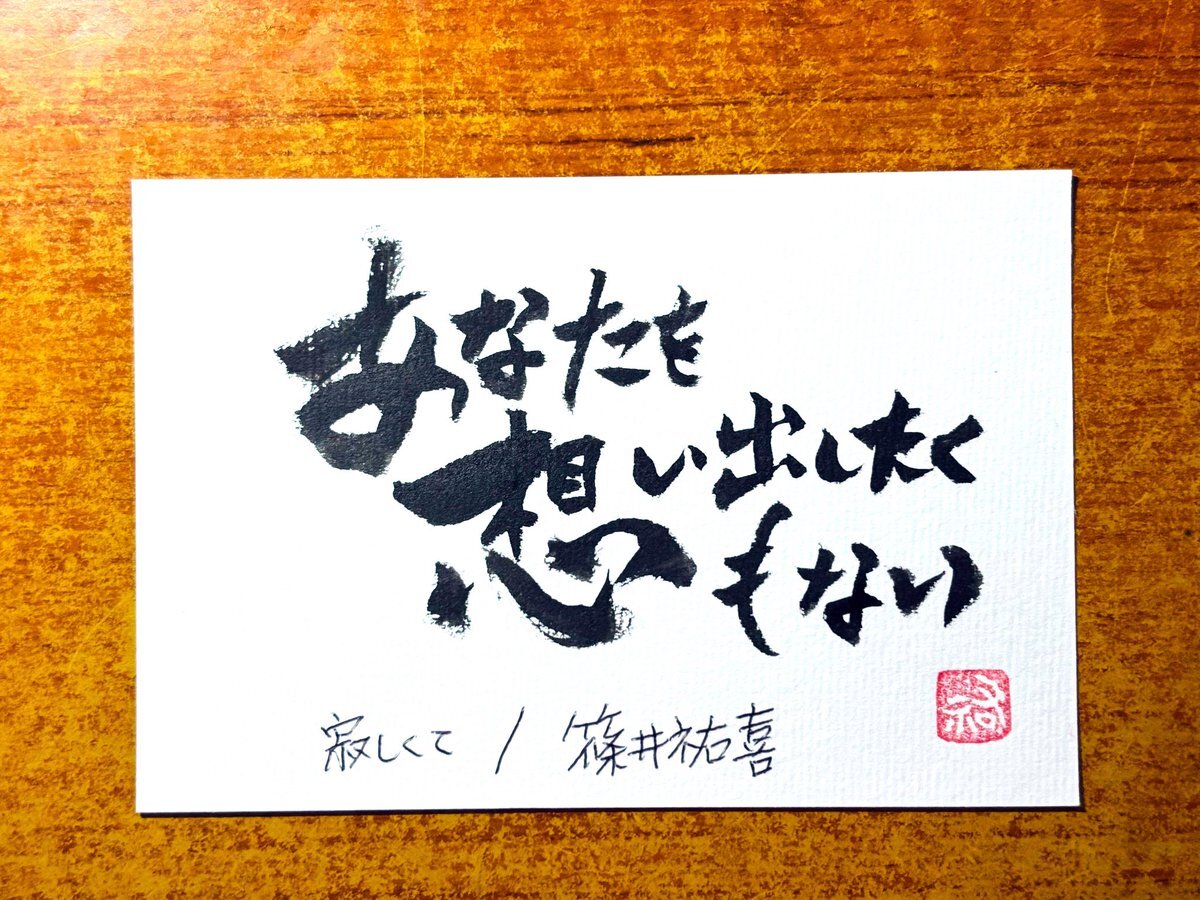 あなたを
想い出したく
もない
寂しくて / 篠井祐喜
祐